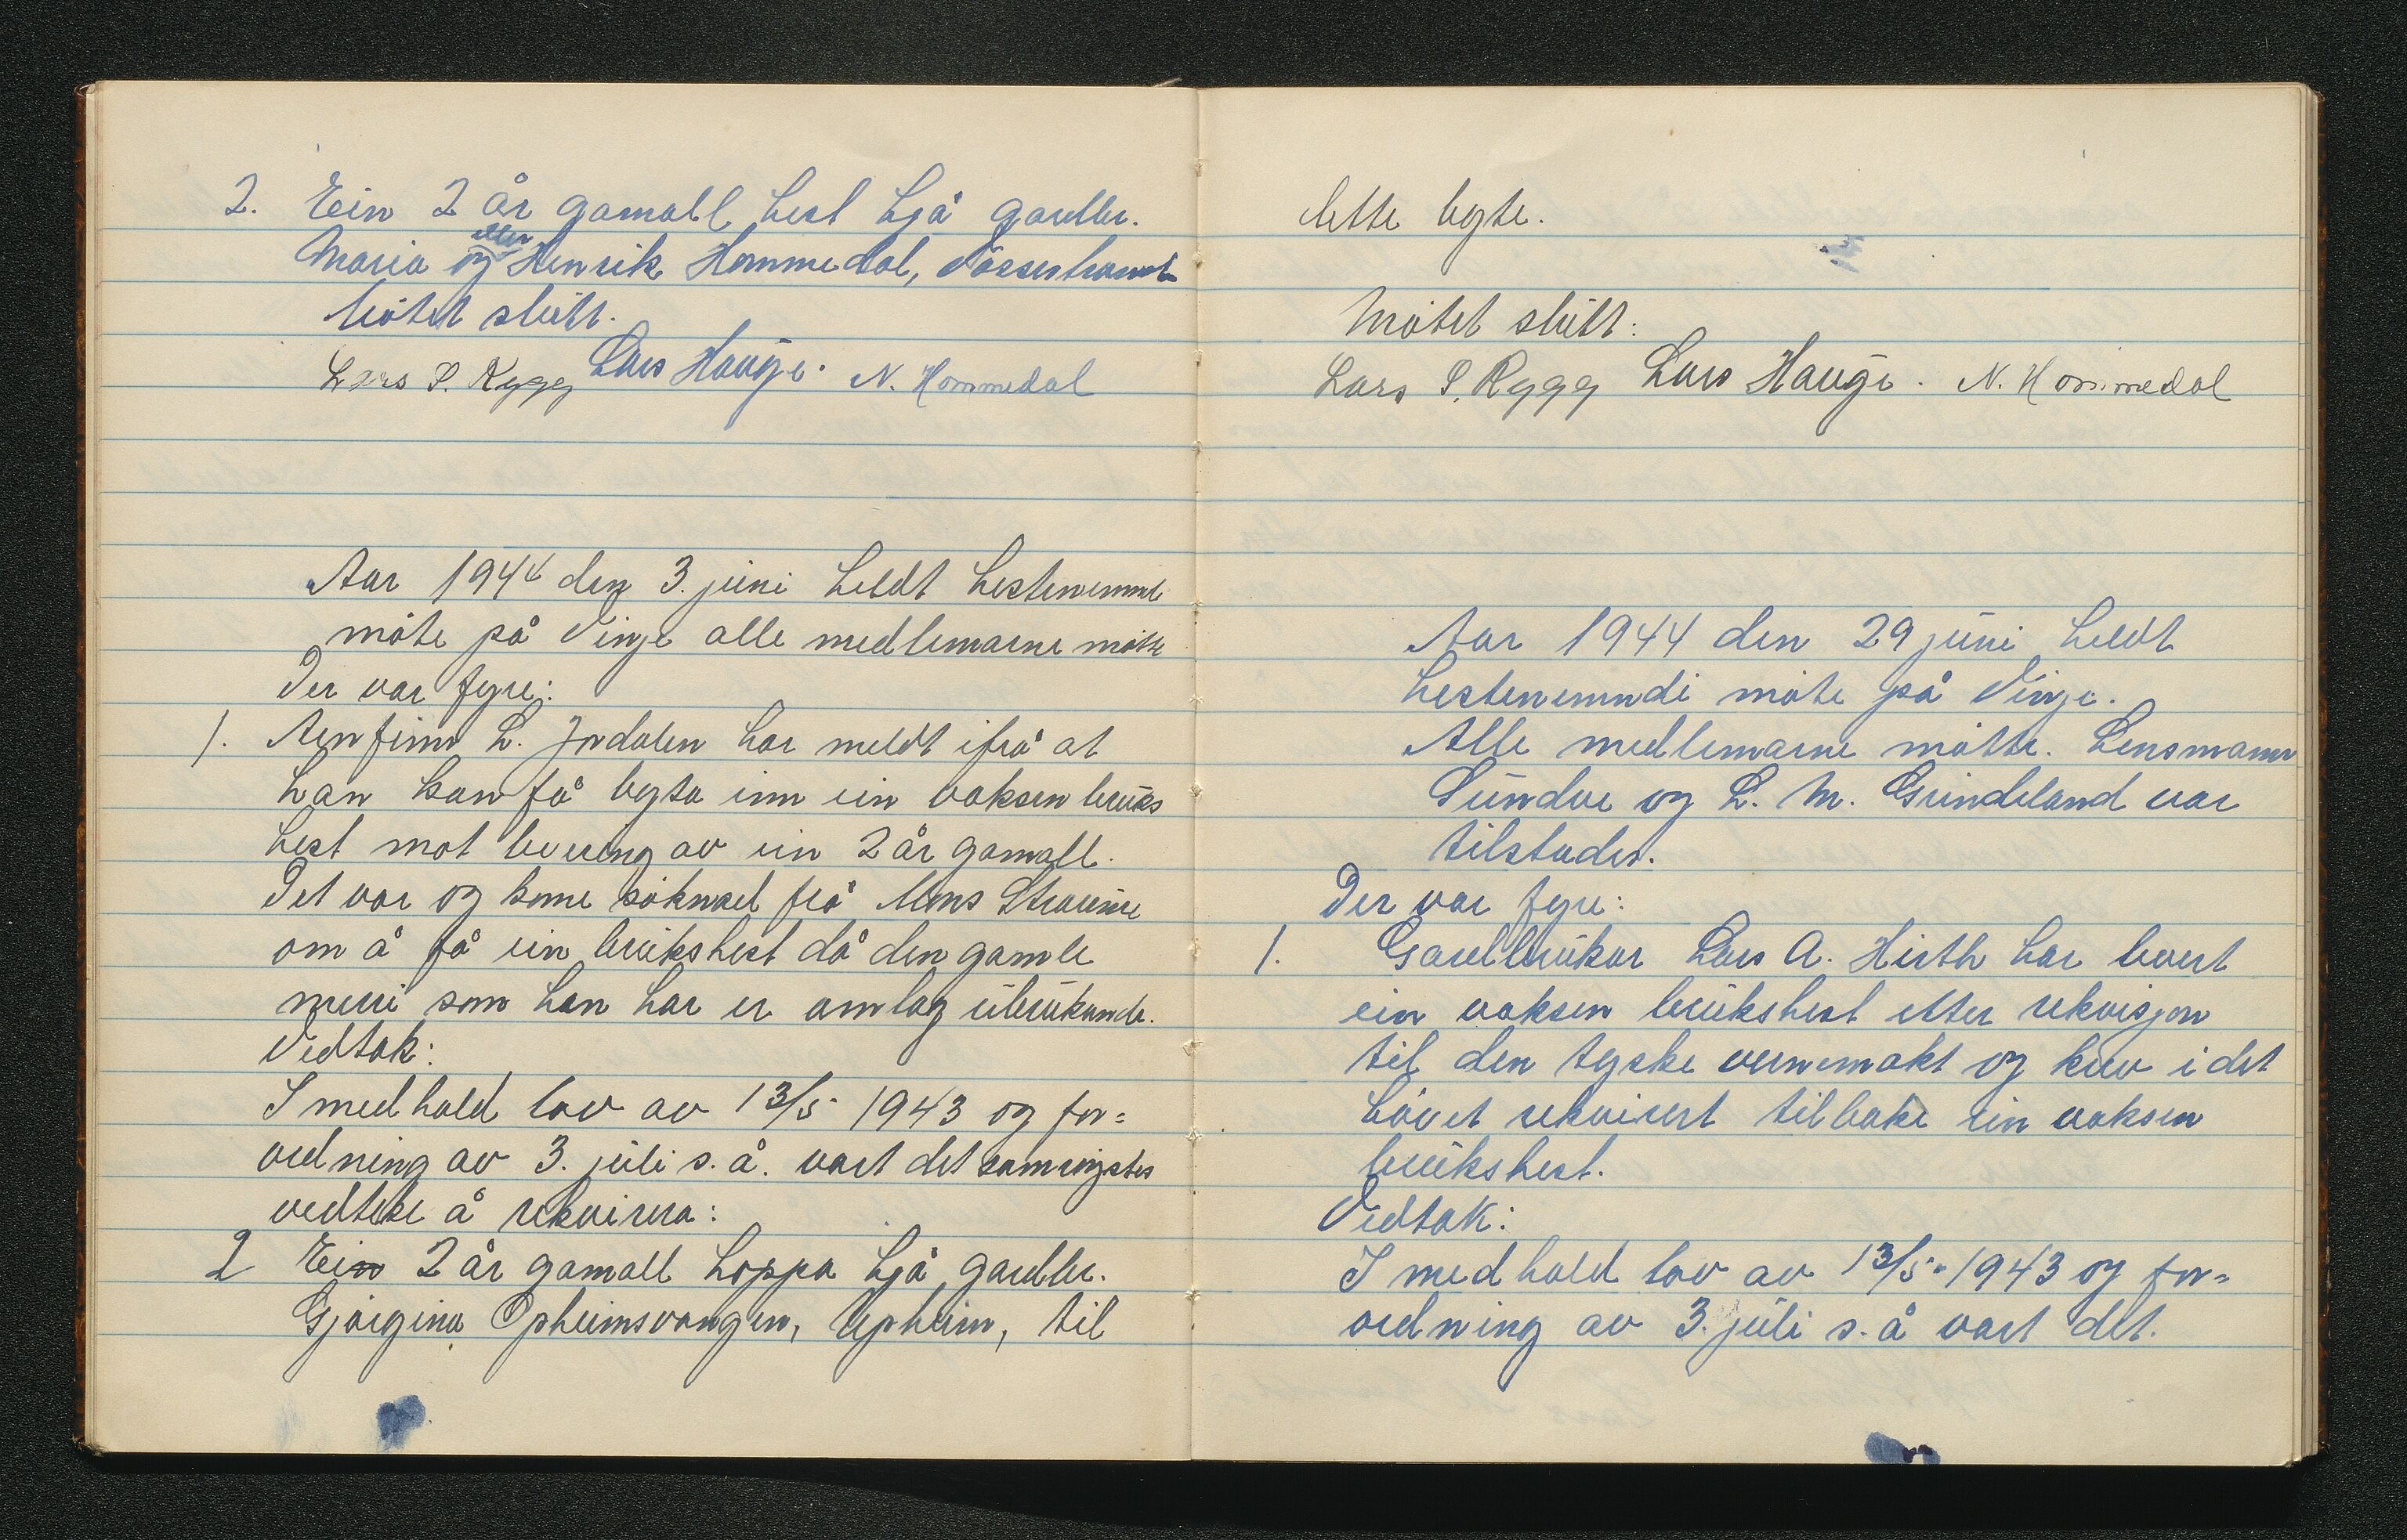 2. Ein 2 år gamall hest hjå gardbr.
eller
Maria og Henrik Hommedal, Vossestrand
Møtet slutt.
Lars S. Rygg Lars Hauge. N. Hommedal
Aar 1944 den 3. juni heldt hestenemnd
møte på Vinje alle medlemarne møtte
Der var fyre:
1. Arnfinn L. Jordalen har meldt ifrå at
han kan få byta inn ein vaksen bruks
hest mot levering av ein 2 år gamall.
Det var og kome søknad frå Mons Straume
om å få ein brukshest då den gamle
merri som han har er omlag ubrukande.
Vedtak:
I medhald lov av 13/5-1943 og for=
ordning av 3. juli s.å. vart det samrøystes
vedteke å rekvirera:
2 Ein 2 år gamall hoppa hjå gardbr.
Gjørgina Opheimsvangen, Upheim, til
dette byte.
Møtet slutt:
Lars S. Rygg Lars Hauge. N. Hommedal
Aar 1944 den 29 juni heldt
hestenemndi møte på Vinje.
Alle medlemarne møtte. Lensmann
Sundve og L. M. Grindeland var
tilstades.
Der var fyre:
1. Gardbrukar Lars A. Hirth har levert
ein vaksen brukshest etter rekvisjon
til den tyske vernemakt og krev i det
høvet rekvirert tilbake ein vaksen
brukshest.
Vedtak:
I medhald lov av 13/5-1943 og for=
ordning av 3. juli s.å vart det.